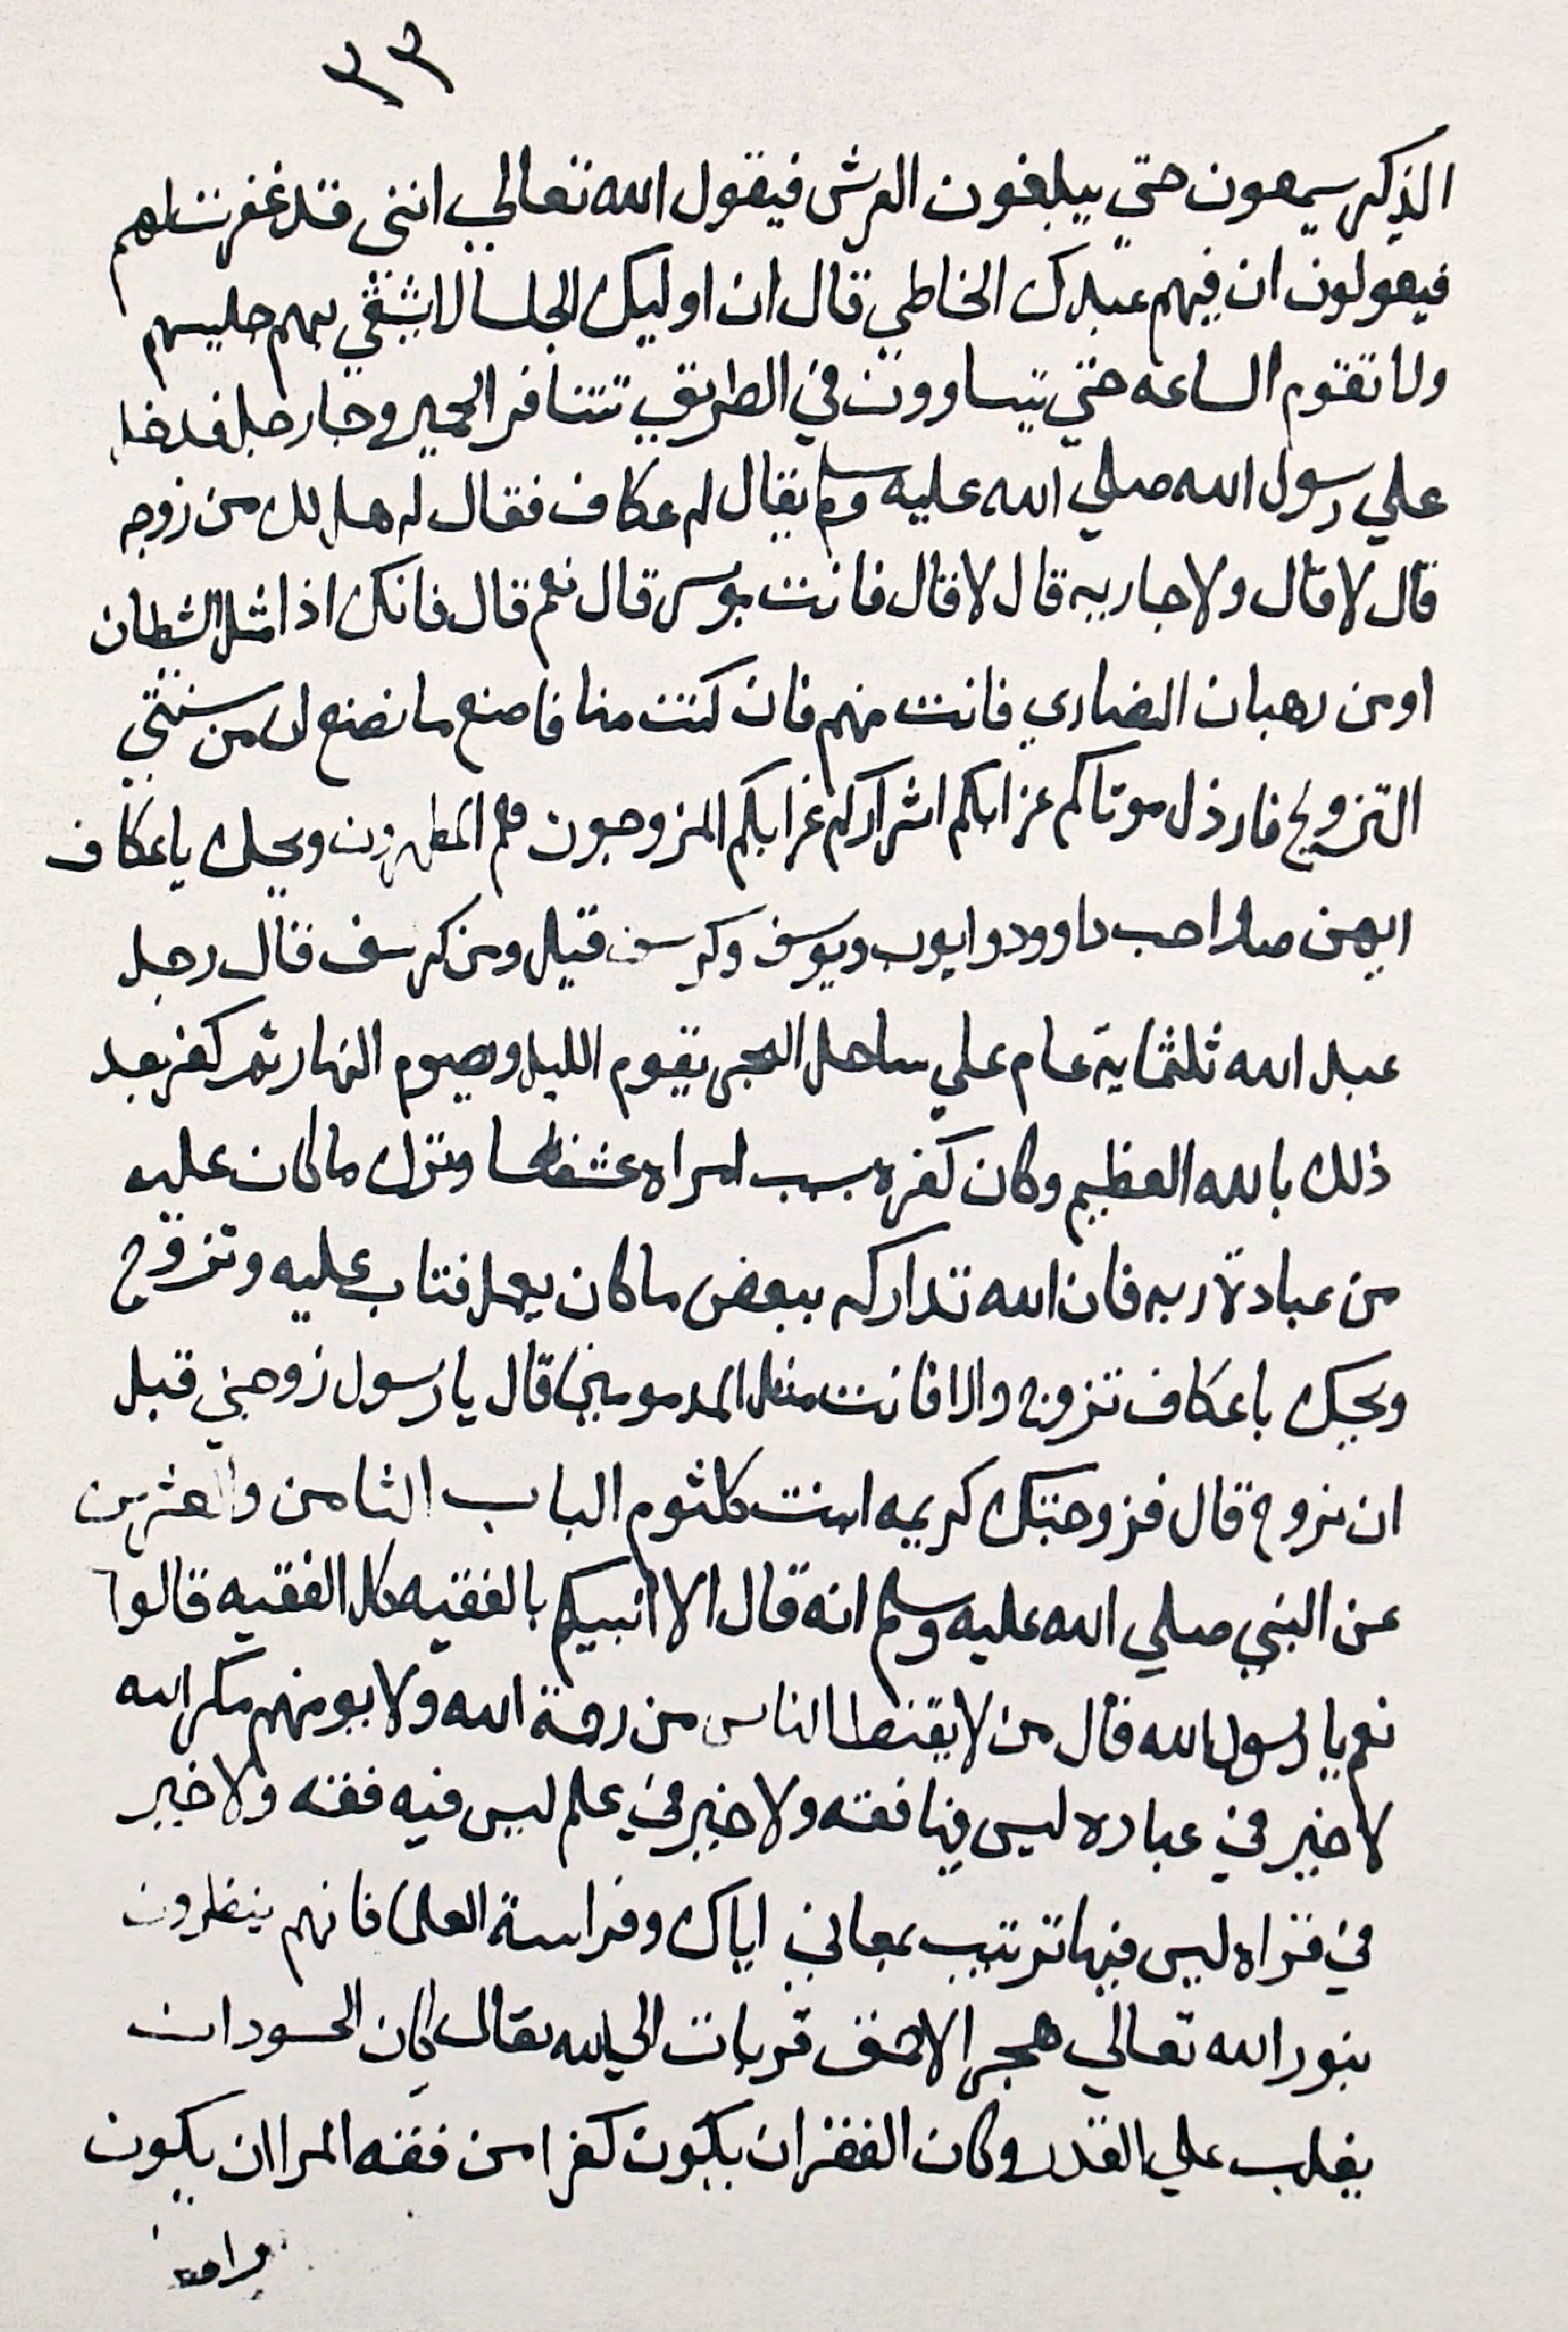 ٣٣
الذكر سيمعون حتي يبلغون العرش فيقول الله تعالي انني قد غفرت لهم
فيقولون ان فيهم عبدك الخاطي قال ان اوليك الجلسا لا يشقي بهم جليسهم
ولا تقوم الساعه حتي يتساوون في الطريق تتنافر الحمير وجا رجل فدخل
علي رسول الله صلي الله عليه وسلم يقال له عكاف فقال له هل لك من زوجه
قال لا قال ولا جاريه قال لا قال فانت بوسر قال نعم قال فانك اذا الشطان
او من رهبان النصاري فانت منهم فان كنت منا فاصنع ما نصنع لان من سنتي
التزويج فارذل موتاكم عزابكم اشراركم عزابكم المزوجون هم المطهرون ويحك يا عكاف
ايهن صواحب داوود وايوب ويوسف وكرسف قيل ومن كرسف قال رجل
عبد الله ثلثماية عام علي ساحل البحر يقوم الليل ويصوم النهار ثم كفر بعد
ذلك بالله العظيم وكان كفره بسبب امراه عشقها وترك ما كان عليه
من عبادة ربه فان الله تداركه ببعض ما كان يعمل فتاب عليه وتزوج
ويحيك باعكاف تزوج والا فانت من المدمومين قال يا رسول زوجني قبل
ان نزوج قال فزوجتك كريمه ابنت كلثوم الباب الثامن والعشرين
عن النبي صلي الله عليه وسلم انه قال الا انبيكم بالفقيه كل الفقيه قالوا
نعم يا رسول الله قال من لا يقنط الناس من رحمة الله ولا يومنهم مكر الله
لا خير في عباده ليس فيها فقه ولا خير في علم ليس فيه فقه ولا خير
في قراه ليس فيها ترتيب بمعاني اياك وفراسة العلما فانهم ينظرون
بنور الله تعالي هجر الاحمق قربات الي الله تعالي كان الحسود ان
يغلب علي القدر وكان الفقر ان يكون كفرا من فقه المرا ان يكون